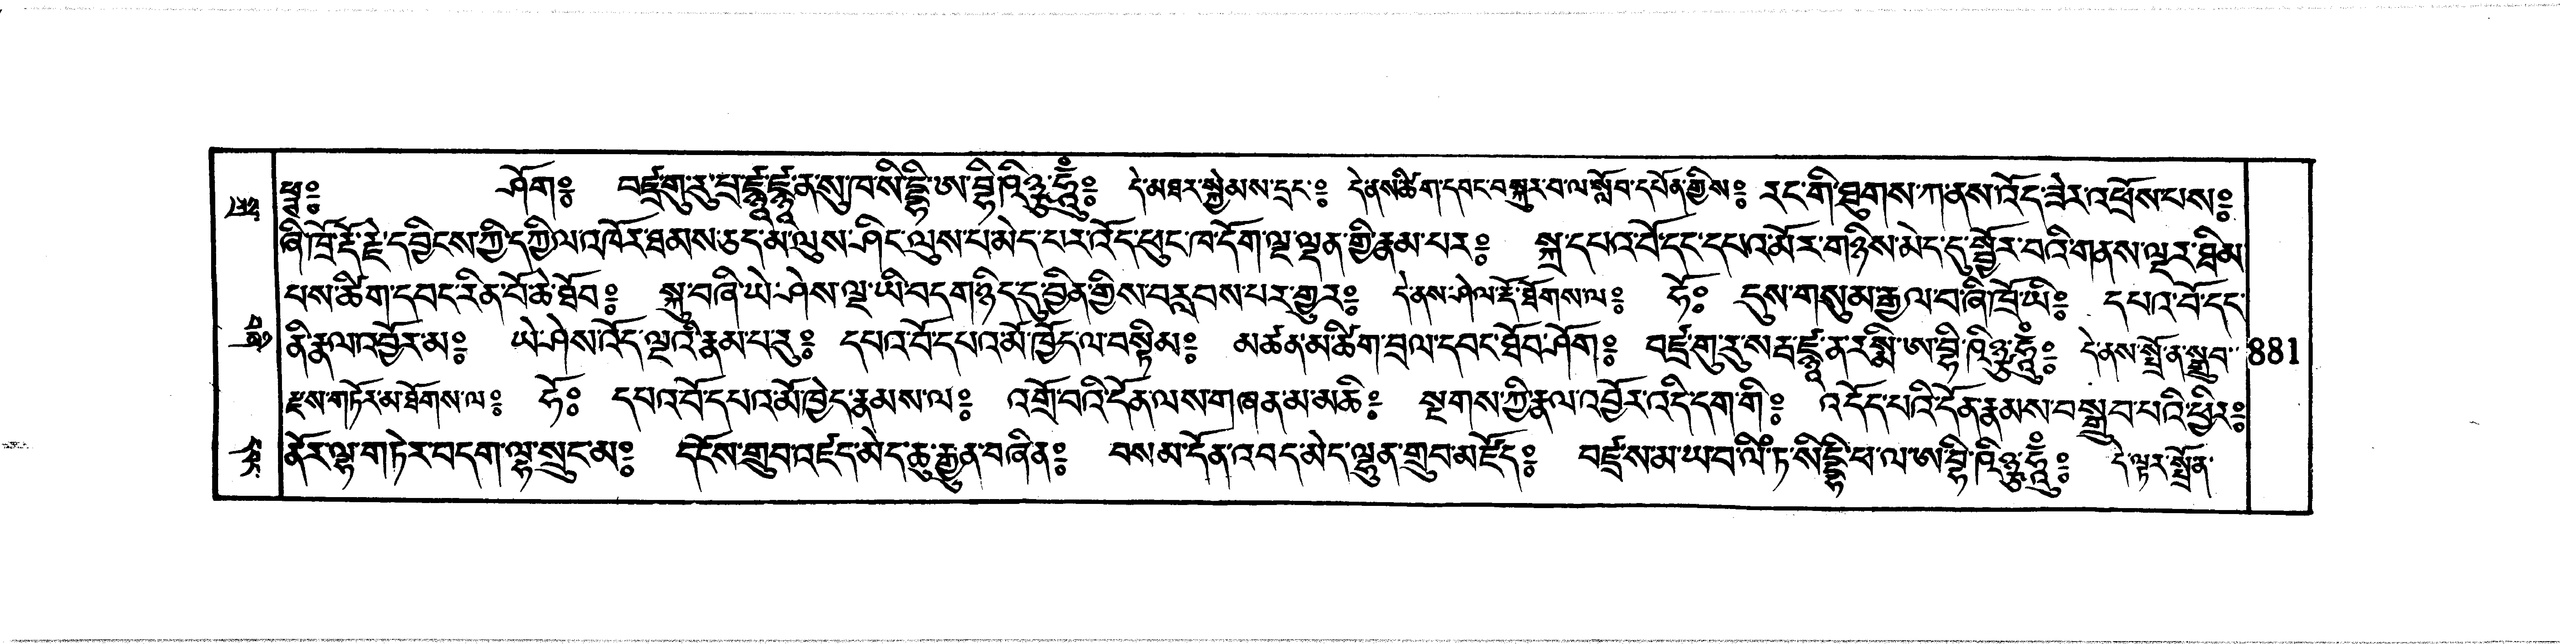 ཕྲ༔ ཤོག༔ བཛྲ་གུ་རུ་པྲཛྙཱ་ཛྙཱ་ན་སུ་ཁ་སིདྡྷི་ཨ་བྷི་ཥིཉྩ་ཧཱུྃ༔ དེ་མཐར་སྐྱེམས་དྲང་༔ དེ་ནས་ཚིག་དབང་བསྐུར་བ་ལ་སློབ་དཔོན་གྱིས༔ རང་གི་ཐུགས་ཀ་ནས་འོད་ཟེར་འཕྲོས་པས༔
ཞི་ཁྲོ་རྡོ་རྗེ་དབྱིངས་ཀྱི་དཀྱིལ་འཁོར་ཐམས་ཅད་མ་ལུས་ཤིང་ལུས་པ་མེད་པར་འོད་ཕུང་ཁ་དོག་ལྔ་ལྡན་གྱི་རྣམ་པར༔ སྐྲ་དཔའ་བོ་དང་དཔའ་མོར་གཉིས་མེད་དུ་སྦྱོར་བའི་གནས་ལྔར་ཐིམ་
པས་ཚིག་དབང་རིན་པོ་ཆེ་ཐོབ༔ སྐུ་བཞི་ཡེ་ཤེས་ལྔ་ཡི་བདག་ཉིད་དུ་བྱིན་གྱིས་བརླབས་པར་གྱུར༔ དེ་ནས་ཤེལ་རྡོ་ཐོགས་ལ༔ ཧོ༔ དུས་གསུམ་རྒྱལ་བ་ཞི་ཁྲོ་ཡི༔ དཔའ་བོ་དང་
ནི་རྣལ་འབྱོར་མ༔ ཡེ་ཤེས་འོད་ལྔའི་རྣམ་པ་རུ༔ དཔའ་བོ་དཔའ་མོ་ཁྱོད་ལ་བསྟིམ༔ མཚན་མ་ཚིག་བྲལ་དབང་ཐོབ་ཤོག༔ བཛྲ་གུ་རུ་སརྦ་ཛྙཱ་ན་རསྨི་ཨ་བྷི་ཥིཉྩ་ཧཱུྃ༔ དེ་ནས་སྤྲོན་སྒྲུབ་
881
རྫས་གཏོར་མ་ཐོགས་ལ༔ ཧོ༔ དཔའ་བོ་དཔའ་མོ་ཁྱེད་རྣམས་ལ༔ འགྲོ་བའི་དོན་ལས་གཞན་མ་མཆི༔ སྔགས་ཀྱི་རྣལ་འབྱོར་འདི་དག་གི༔ འདོད་པའི་དོན་རྣམས་བསྒྲུབ་པའི་ཕྱིར༔
ནོར་ལྷ་གཏེར་བདག་ལྷ་སྲུང་མ༔ དངོས་གྲུབ་འཛད་མེད་ཆུ་རྒྱུན་བཞིན༔ བསམ་དོན་འབད་མེད་ལྷུན་གྲུབ་མཛོད༔ བཛྲ་ས་མ་ཡ་བ་ལིཾ་ཏ་སིདྡྷི་ཕ་ལ་ཨ་བྷི་ཥིཉྩ་ཧཱུྃ༔ དེ་ལྟར་སྤྲོན་